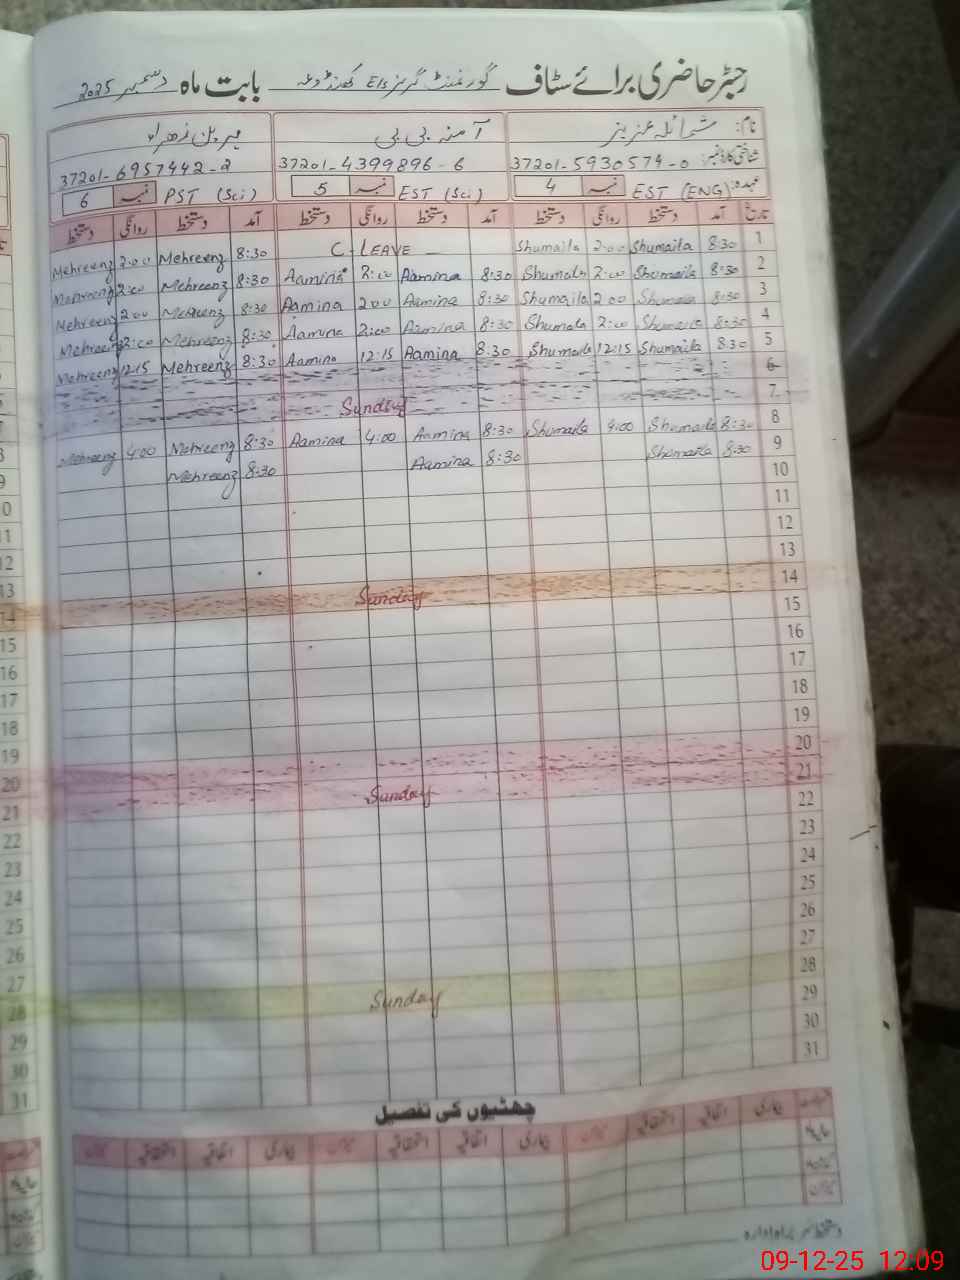 رجسٹر حاضری برائے سٹاف گورنمنٹ گرلز E/s کھنڈوعہ بابت ماہ دسمبر 2025
نام: شمائلہ عزیز آمنہ بی بی مہرین زھراء
شناختی کارڈ نمبر: 37201-5930574-0 37201-4399896-6 37201-6957442-2
عہدہ: EST (ENG) نمبر 4 EST (Sci) نمبر 5 PST (Sci) نمبر 6
تاریخ آمد دستخط روانگی دستخط آمد دستخط روانگی دستخط آمد دستخط روانگی دستخط
1 8:30 Shumaila 2:00 Shumaila C. LEAVE 8:30 Mehreenz 2:00 Mehreenz
2 8:30 Shumaila 2:00 Shumaila 8:30 Aamina 2:00 Aamina 8:30 Mehreenz 2:00 Mehreenz
3 8:30 Shumaila 2:00 Shumaila 8:30 Aamina 2:00 Aamina 8:30 Mehreenz 2:00 Mehreenz
4 8:30 Shumaila 2:00 Shumaila 8:30 Aamina 2:00 Aamina 8:30 Mehreenz 2:00 Mehreenz
5 8:30 Shumaila 12:15 Shumaila 8:30 Aamina 12:15 Aamina 8:30 Mehreenz 12:15 Mehreenz
6
7 Sunday
8 8:30 Shumaila 4:00 Shumaila 8:30 Aamina 4:00 Aamina 8:30 Mehreenz 4:00 Mehreenz
9 8:30 Shumaila 8:30 Aamina 8:30 Mehreenz
10
11
12
13
14 Sunday
15
16
17
18
19
20
21 Sunday
22
23
24
25
26
27
28 Sunday
29
30
31
چھٹیوں کی تفصیل
بیماری اتفاقیہ استحقاقیہ میزان بیماری اتفاقیہ استحقاقیہ میزان بیماری اتفاقیہ استحقاقیہ میزان
حالیہ ماہ
گزشتہ ماہ
میزان
دستخط سربراہ ادارہ
09-12-25 12:09